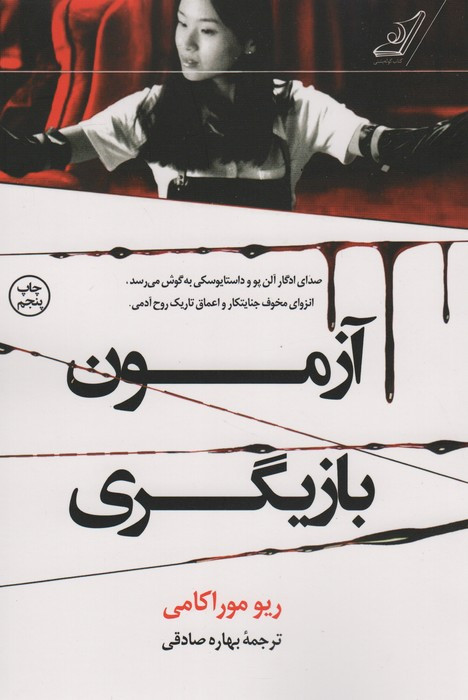 صدای ادگار آلن پو و داستایوسکی به‌گوش می‌رسد،
انزوای مخوف جنایتکار و اعماق تاریک روح آدمی.
چاپ
پنجم
آزمون
بازیگری
ریو موراکامی
ترجمهٔ بهاره صادقی